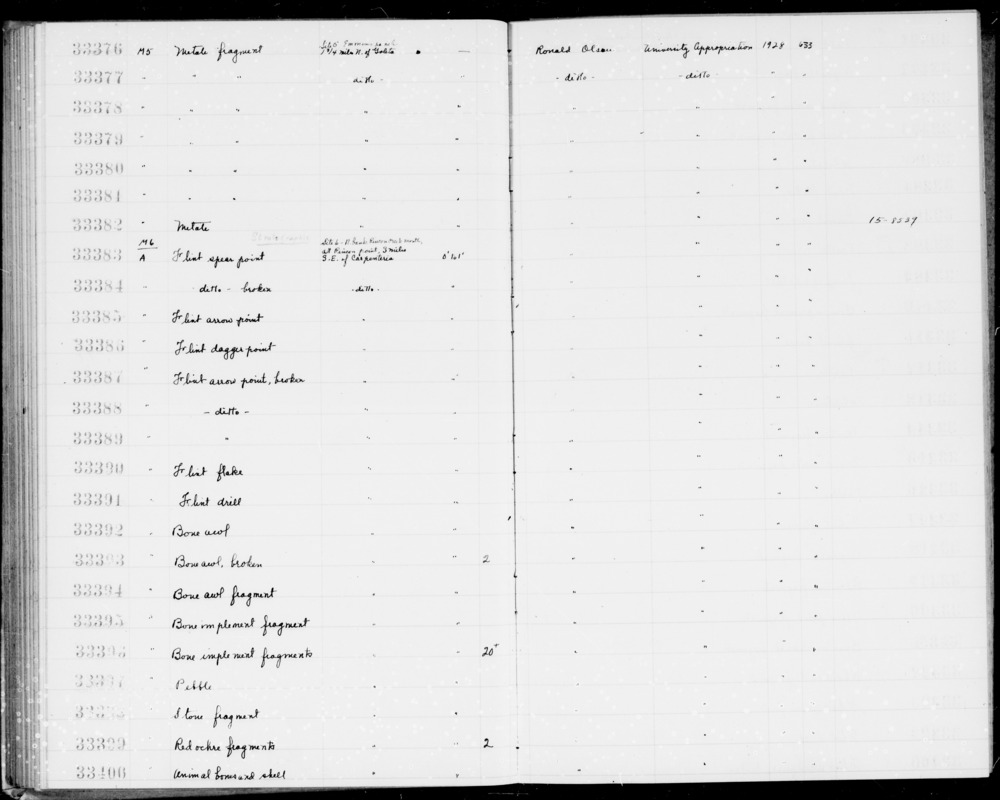 33376 M5 Metate fragment 1 3/4 miles N. of Goleta " — Ronald Olson University Appropriation 1928 633
33377 " " " ditto " - ditto - - ditto - " "
33378 " " " " " " " " "
33379 " " " " " " " " "
33380 " " " " " " " " "
33381 " " " " " " " " "
33382 " Metate " " " " " " 15-8339
M6
33383 A Flint spear point at Rincon point, 3 miles S.E. of Carpenteria 0'to1' " " " "
33384 " ditto - broken - ditto - " " " " "
33385 " Flint arrow point " " " " " "
33386 " Flint dagger point " " " " " "
33387 " Flint arrow point, broken " " " " " "
33388 " - ditto - " " " " " "
33389 " " " " " " " "
33390 " Flint flake " " " " " "
33391 " Flint drill " " " " " "
33392 " Bone awl " " " " " "
33393 " Bone awl, broken " " 2 " " " "
33394 " Bone awl fragment " " " " " "
33395 " Bone implement fragment " " " " " "
33396 " Bone implement fragments " " 20+ " " " "
33397 " Pebble " " " " " "
33398 " Stone fragment " " " " " "
33399 " Red ochre fragments " " 2 " " " "
33400 " Animal bones and shell " " " " " "